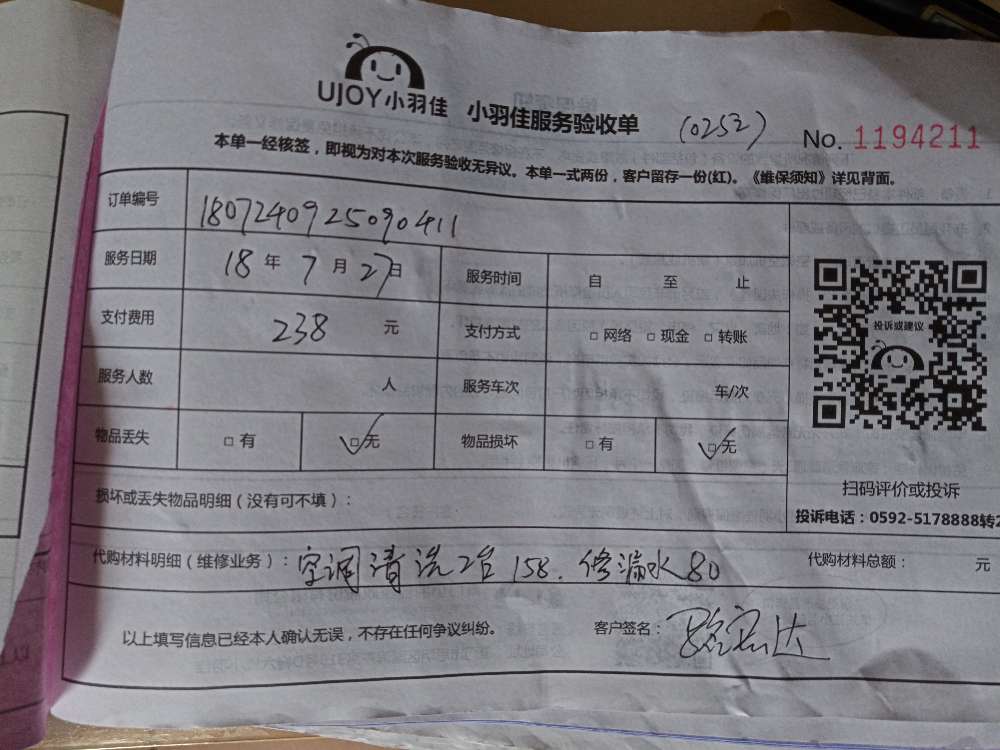 UJOY小羽佳 小羽佳服务验收单 (0252) No. 1194211
本单一经核签，即视为对本次服务验收无异议。本单一式两份，客户留存一份(红)。《维保须知》详见背面。
订单编号 1807240925090411
服务日期 18 年 7 月 27日 服务时间 自 至 止
支付费用 238 元 支付方式 □ 网络 □ 现金 □ 转账
投诉或建议
服务人数 人 服务车次 车/次
物品丢失 □ 有 ☑ 无 物品损坏 □ 有 ☑ 无
扫码评价或投诉
损坏或丢失物品明细（没有可不填）：
投诉电话：0592-5178888转2
代购材料明细（维修业务）：空调清洗2台 158. 修漏水 80 代购材料总额： 元
以上填写信息已经本人确认无误，不存在任何争议纠纷。 客户签名：